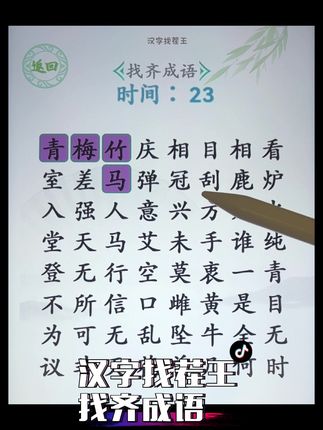 汉字找茬王
返回
找齐成语
时间：23
青梅竹庆相目相看
室差马弹冠刮鹿炉
入强人意兴方
堂天马艾未手谁纯
登无行空莫衷一青
不所信口雌黄是目
为可无乱坠牛全无
议何时
汉字找茬王
找齐成语